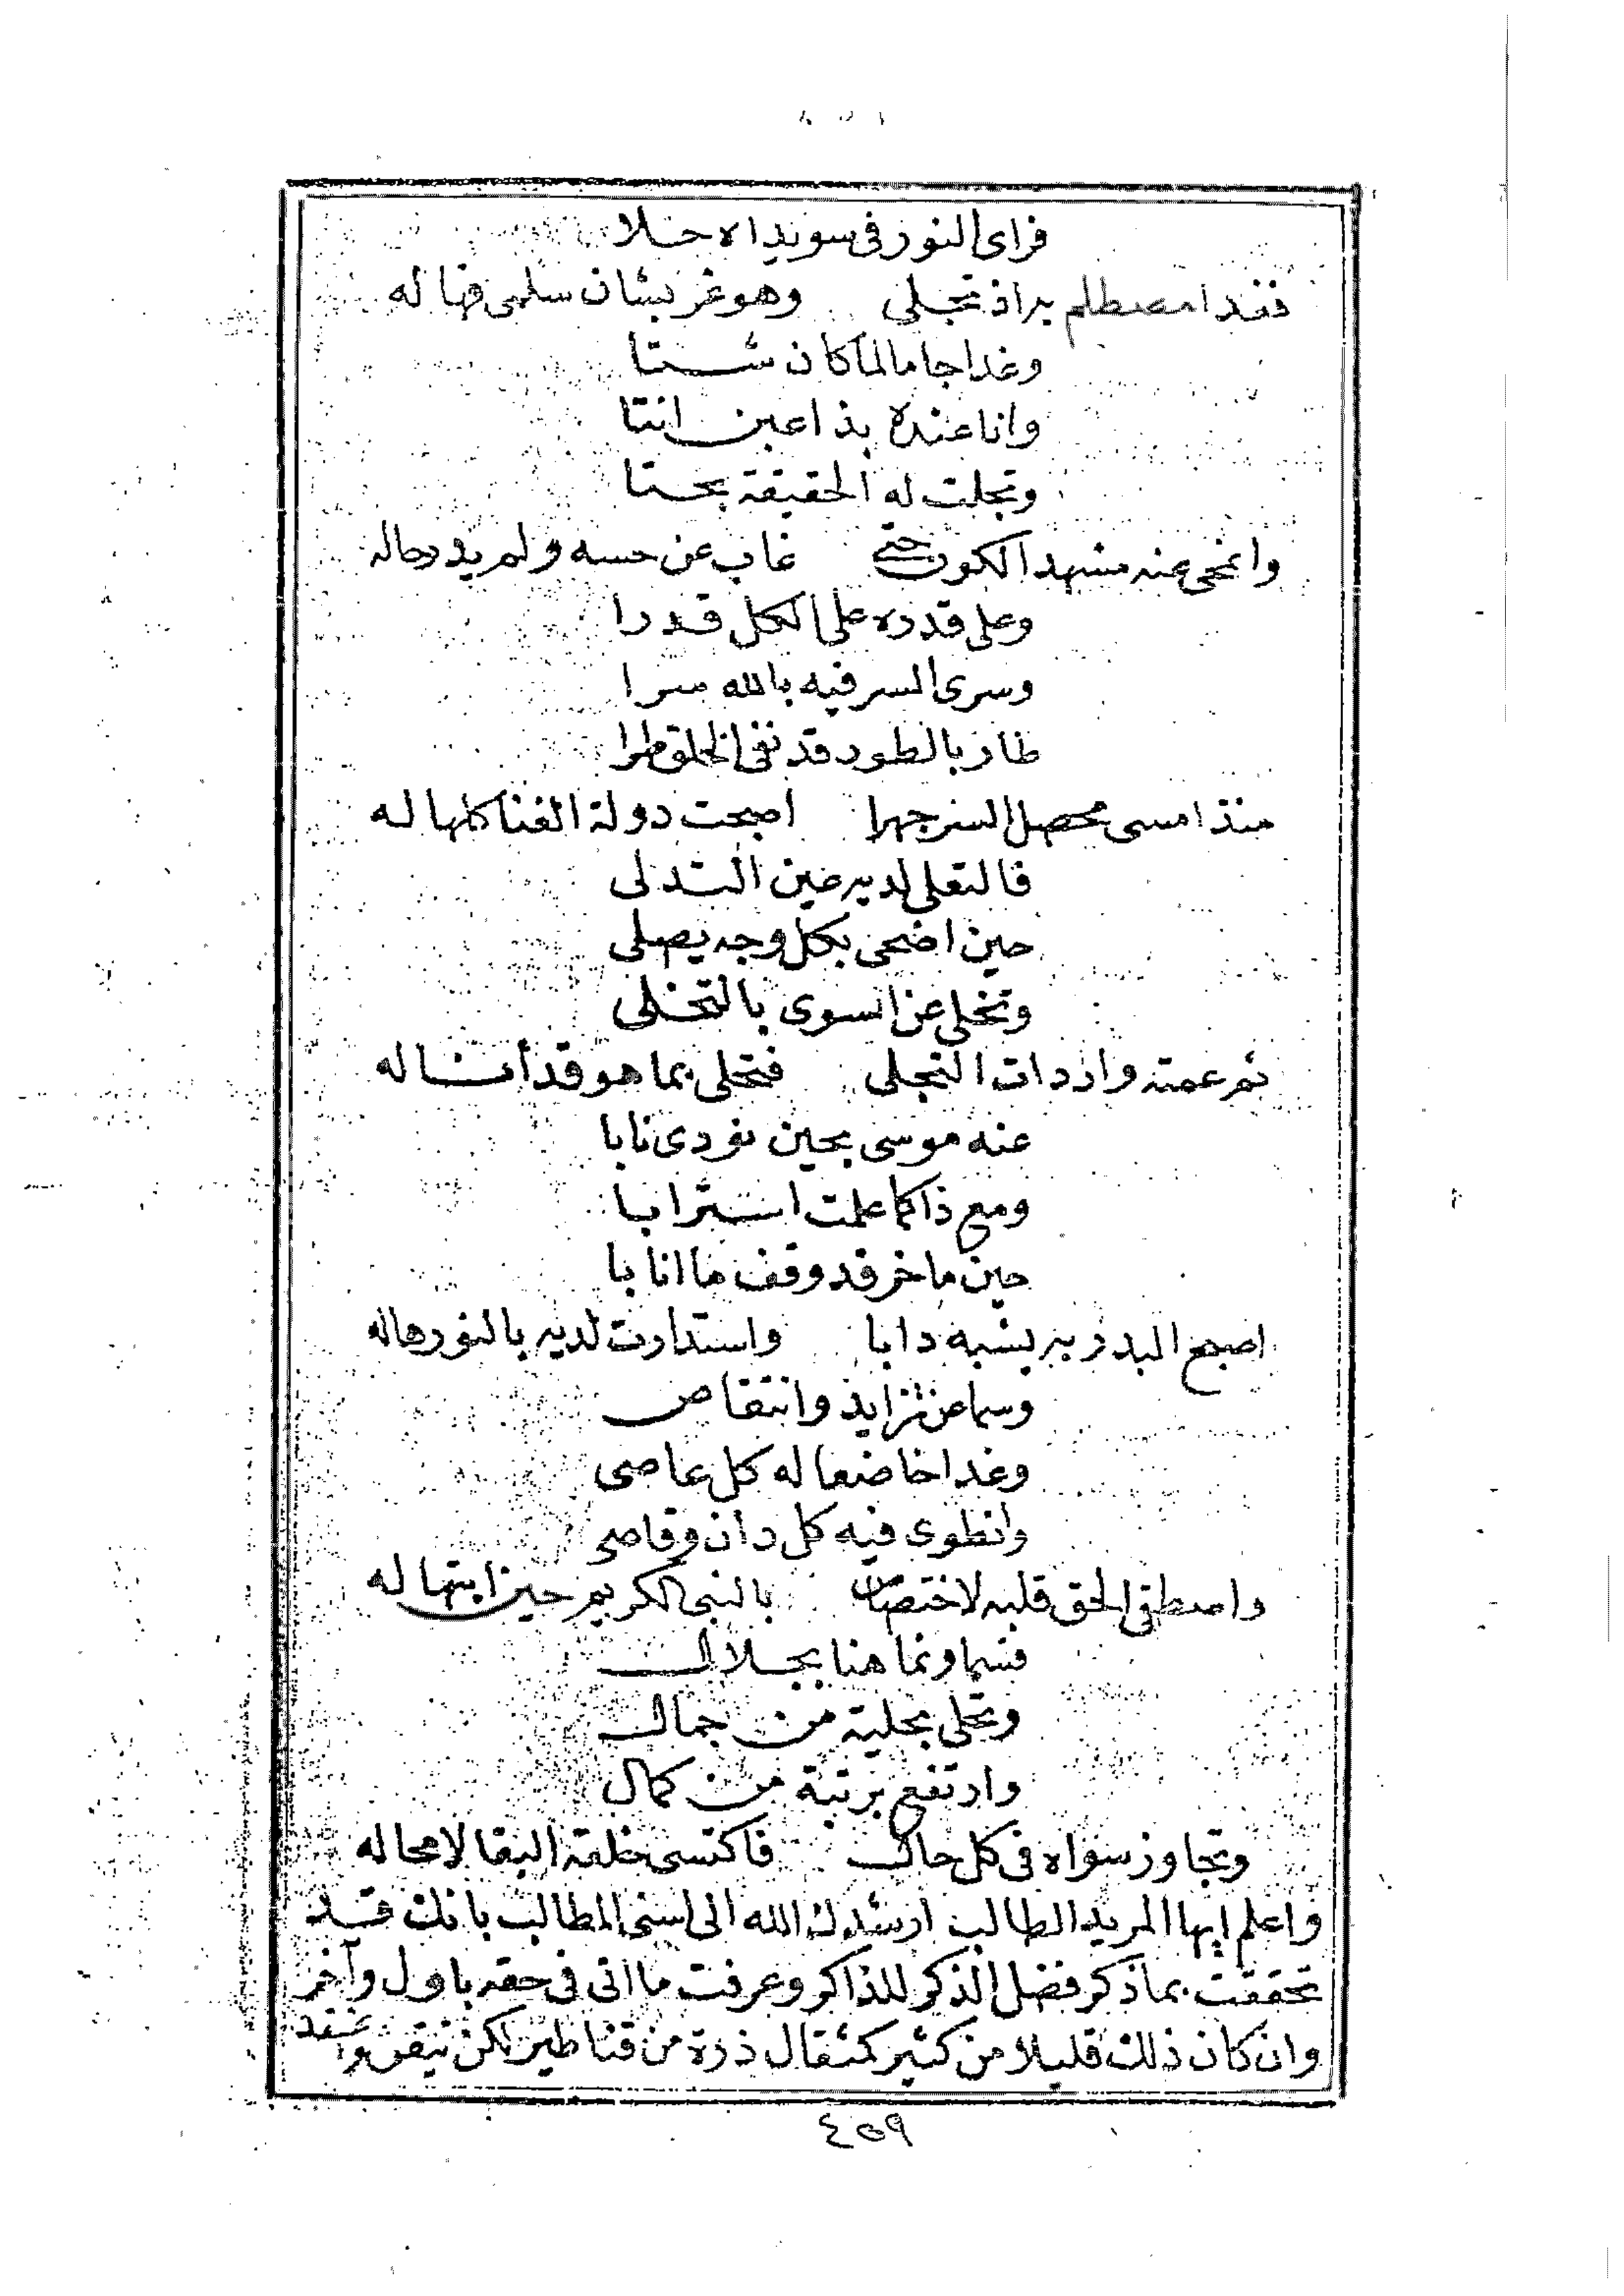 فراى النور فى سويداه حلا
فغدا مصطلم به اذ تجلى وهو غر بشان سلمى فها له
وغدا جامالما كان شتا
وانا عنده بذا عين انتا
وتجلت له الحقيقة بحتا
وانمحى عنه مشهد الكون حتى غاب عن حسه ولم يدر حاله
وعلى قدره على الكل قدرا
وسرى السر فيه بالله سرا
طار بالطور قد نفى الخلق طرا
منذ امسى محصل السر جهرا اصبحت دولة الفنا كلها له
فالتعلى لديه عين التدلى
حين اضحى بكل وجه يصلى
وتخلى عن السوى بالتخلى
ثم عمته واردات التجلى فتحلى بما هو قد أنشا له
عنه موسى بحين نودى نابا
ومع ذا كما علمت استرابا
حين ما خر قد وقف ما انا با
اصبح البدر به يشبه دابا واستدارت لديه بالنور هاله
وسما عن تزايد وانتقاص
وغدا خاضعا له كل عاصى
وانطوى فيه كل دان وقاصى
واصطفى الحق قلبه لاختصاص بالنبى الكريم حين ابتهاله
فسما ونما هنا بجلال
وتحلى بحلية من جمال
وارتفع برتبة من كمال
وتجاوز سواه فى كل حال فاكتسى خلقة البقا لا محاله
واعلم ايها المريد الطالب ارشدك الله الى اسنى المطالب بانك قد
تحققت بما ذكر فضل الذكر للذاكر وعرفت ما اتى فى حقه باول وآخر
وان كان ذلك قليلا من كثير كمثقال ذرة من قناطير لكن تيقن واعتقد
٤٥٩